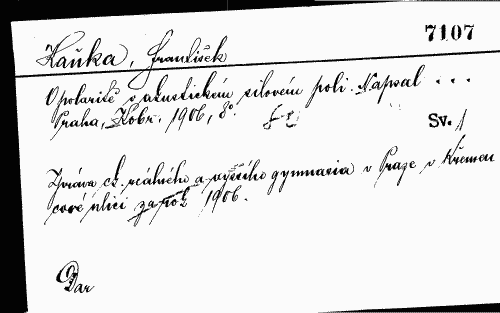 7107
Kaňka, František
O polaritě v akustickém silovém poli. Napsal ...
Praha, Kobr. 1906, 8°.
Sv. 1
Zpráva c. k. reálného a vyššího gymnasia v Praze v Křemen
cové ulici za rok 1906.
Dar